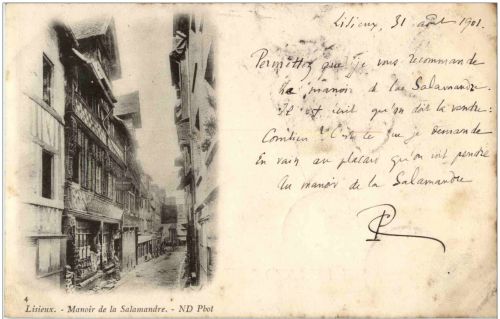 Lisieux, 31 août 1901.
Permettez que je vous recommande
Le manoir de la Salamandre.
Il est écrit qu'on doit la vendre:
Combien? C'est ce que je demande
En vain au placard qu'on voit pendre
Au manoir de la Salamandre
4
Lisieux. - Manoir de la Salamandre. - ND Phot